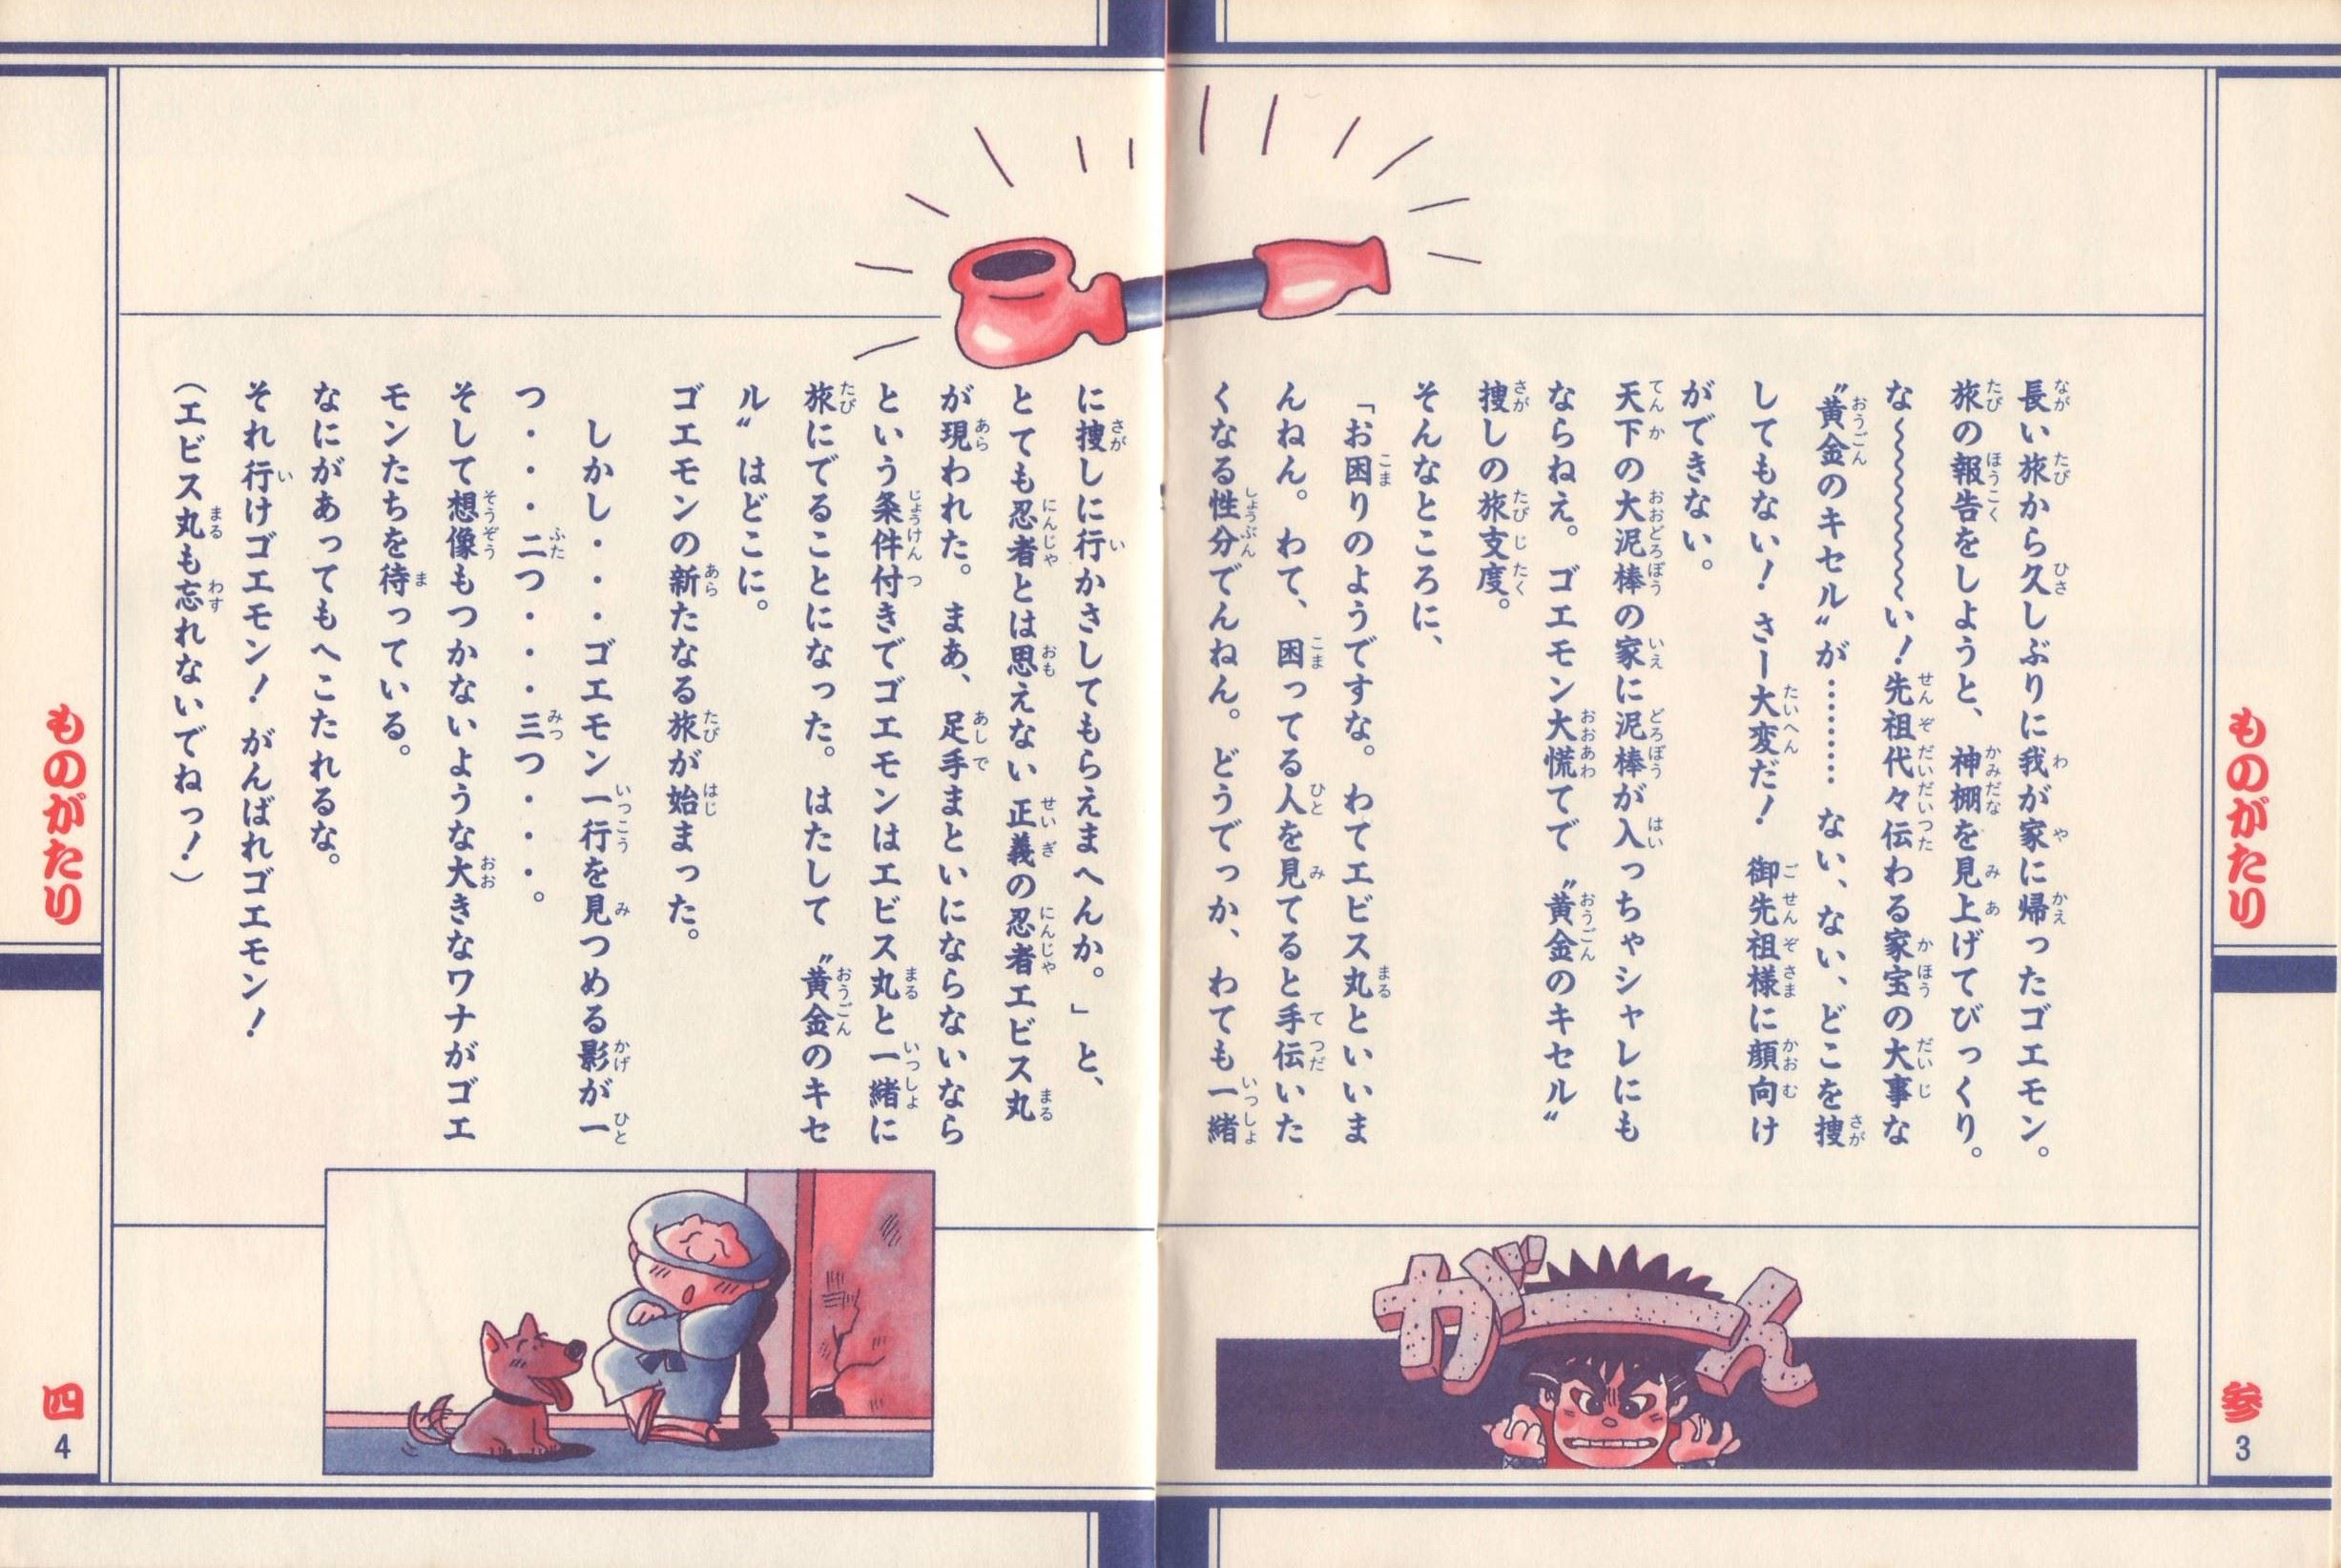 ものがたり
長い旅から久しぶりに我が家に帰ったゴエモン。
旅の報告をしようと、神棚を見上げてびっくり。
な〜〜〜〜〜〜い！先祖代々伝わる家宝の大事な
〝黄金のキセル〟が………ない、ない、どこを捜
してもない！さー大変だ！　御先祖様に顔向け
ができない。
天下の大泥棒の家に泥棒が入っちゃシャレにも
ならねえ。ゴエモン大慌てで〝黄金のキセル〟
捜しの旅支度。
そんなところに、
「お困りのようですな。わてエビス丸といいま
んねん。わて、困ってる人を見てると手伝いた
くなる性分でんねん。どうでっか、わても一緒
がーん
参
3
に捜しに行かさしてもらえまへんか。」と、
とても忍者とは思えない正義の忍者エビス丸
が現われた。まあ、足手まといにならないなら
という条件付きでゴエモンはエビス丸と一緒に
旅にでることになった。はたして〝黄金のキセ
ル〟はどこに。
ゴエモンの新たなる旅が始まった。
しかし・・・ゴエモン一行を見つめる影が一
つ・・・・二つ・・・・三つ・・・。
そして想像もつかないような大きなワナがゴエ
モンたちを待っている。
なにがあってもへこたれるな。
それ行けゴエモン！がんばれゴエモン！
（エビス丸も忘れないでねっ！）
ものがたり
四
4